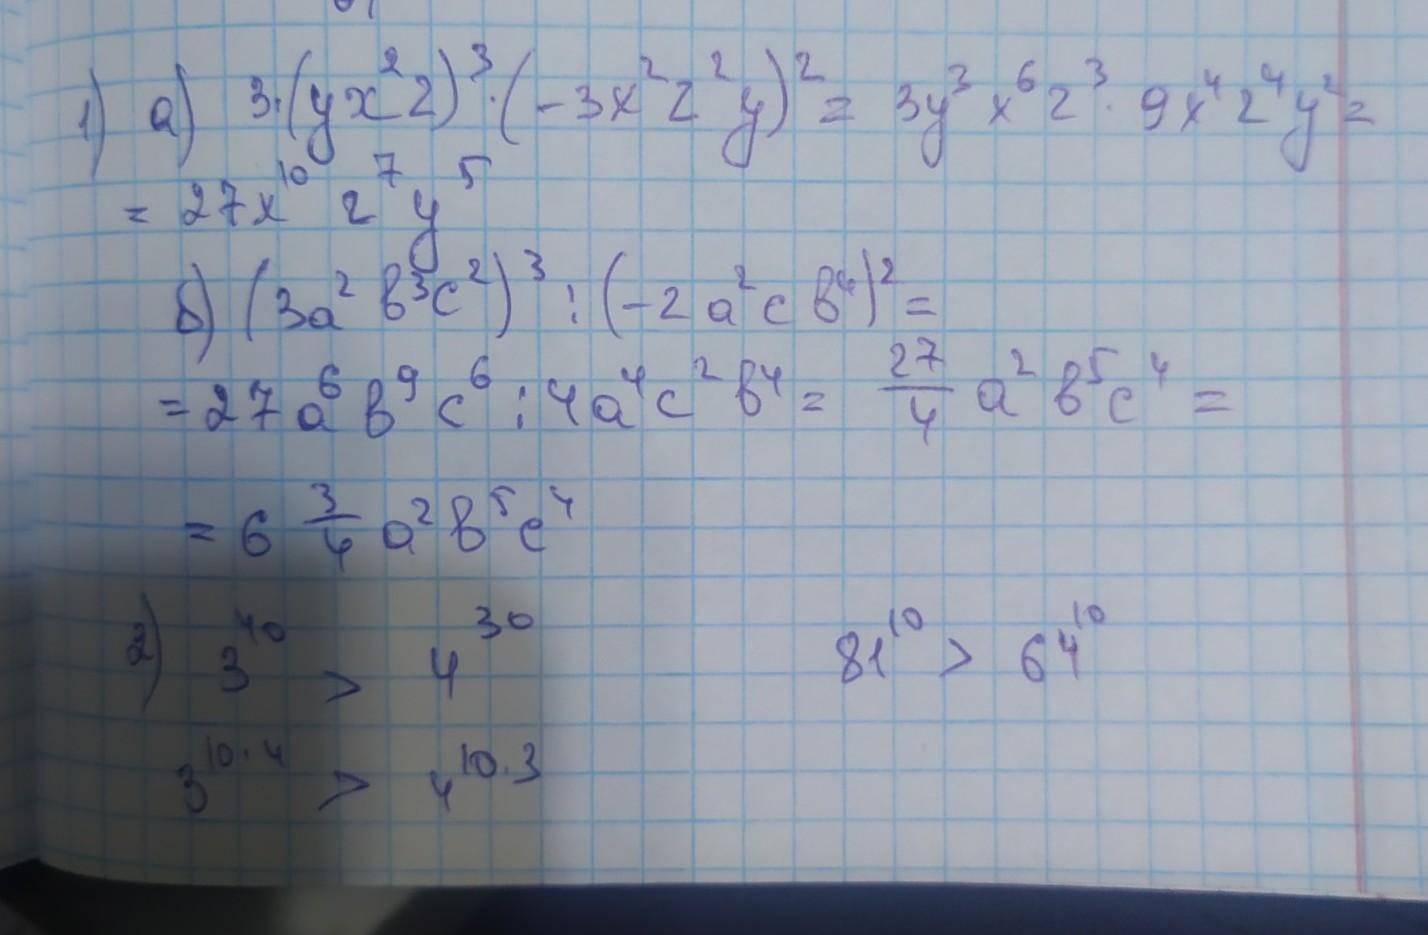 1) а) 3·(yx²z)³·(-3x²z²y)² = 3y³x⁶z³·9x⁴z⁴y² =
= 27x¹⁰z⁷y⁵
б) (3a²b³c²)³ : (-2a²cb⁴)² =
= 27a⁶b⁹c⁶ : 4a⁴c²b⁴ = 27/4 a²b⁵c⁴ =
= 6 3/4 a²b⁵c⁴
2) 3⁴⁰ > 4³⁰ 81¹⁰ > 64¹⁰
3¹⁰·⁴ > 4¹⁰·³